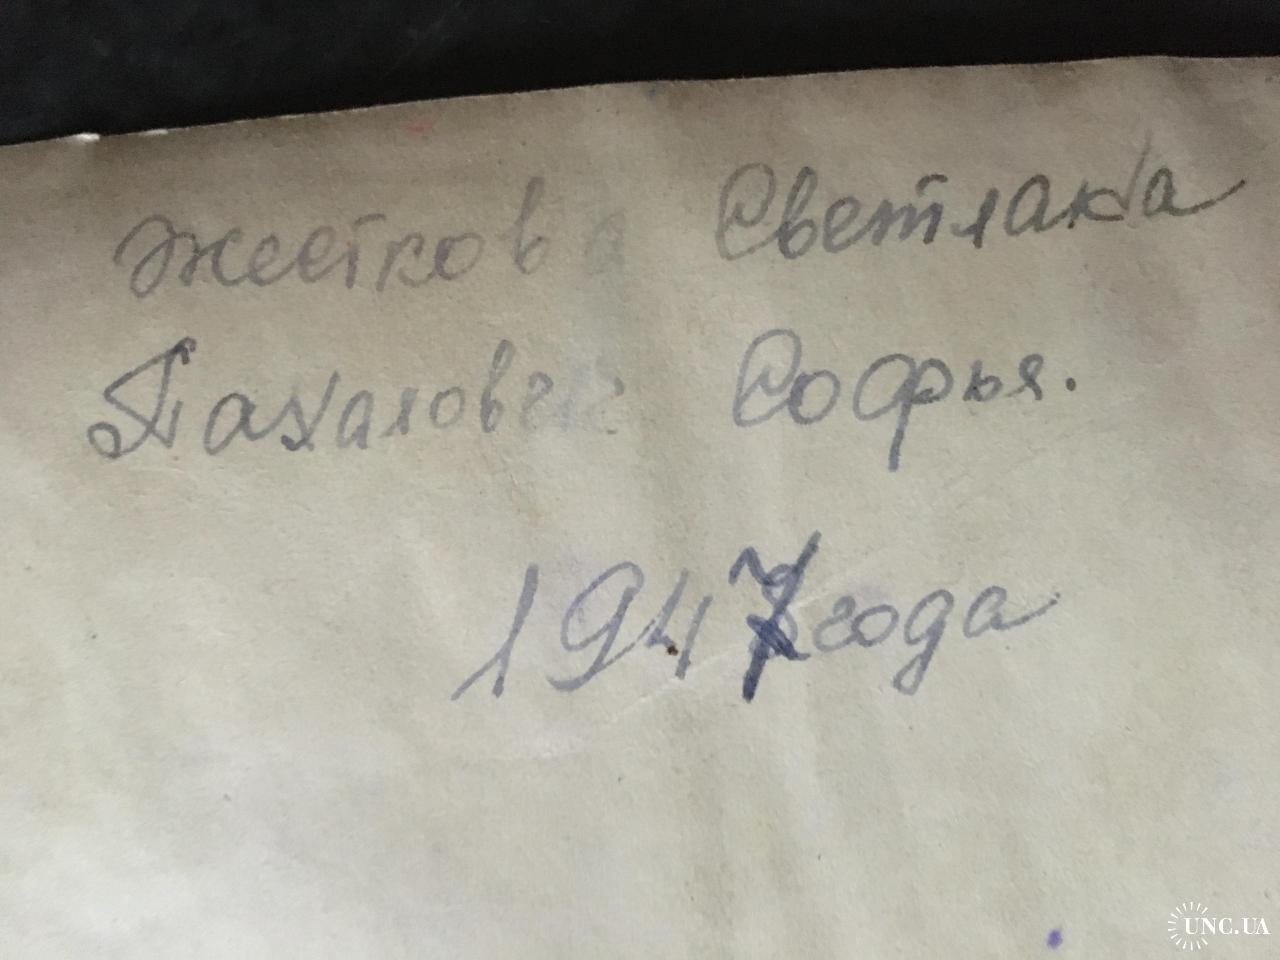 Жесткова Светлана
Пахалович Софья.
1947 года
UNC.UA